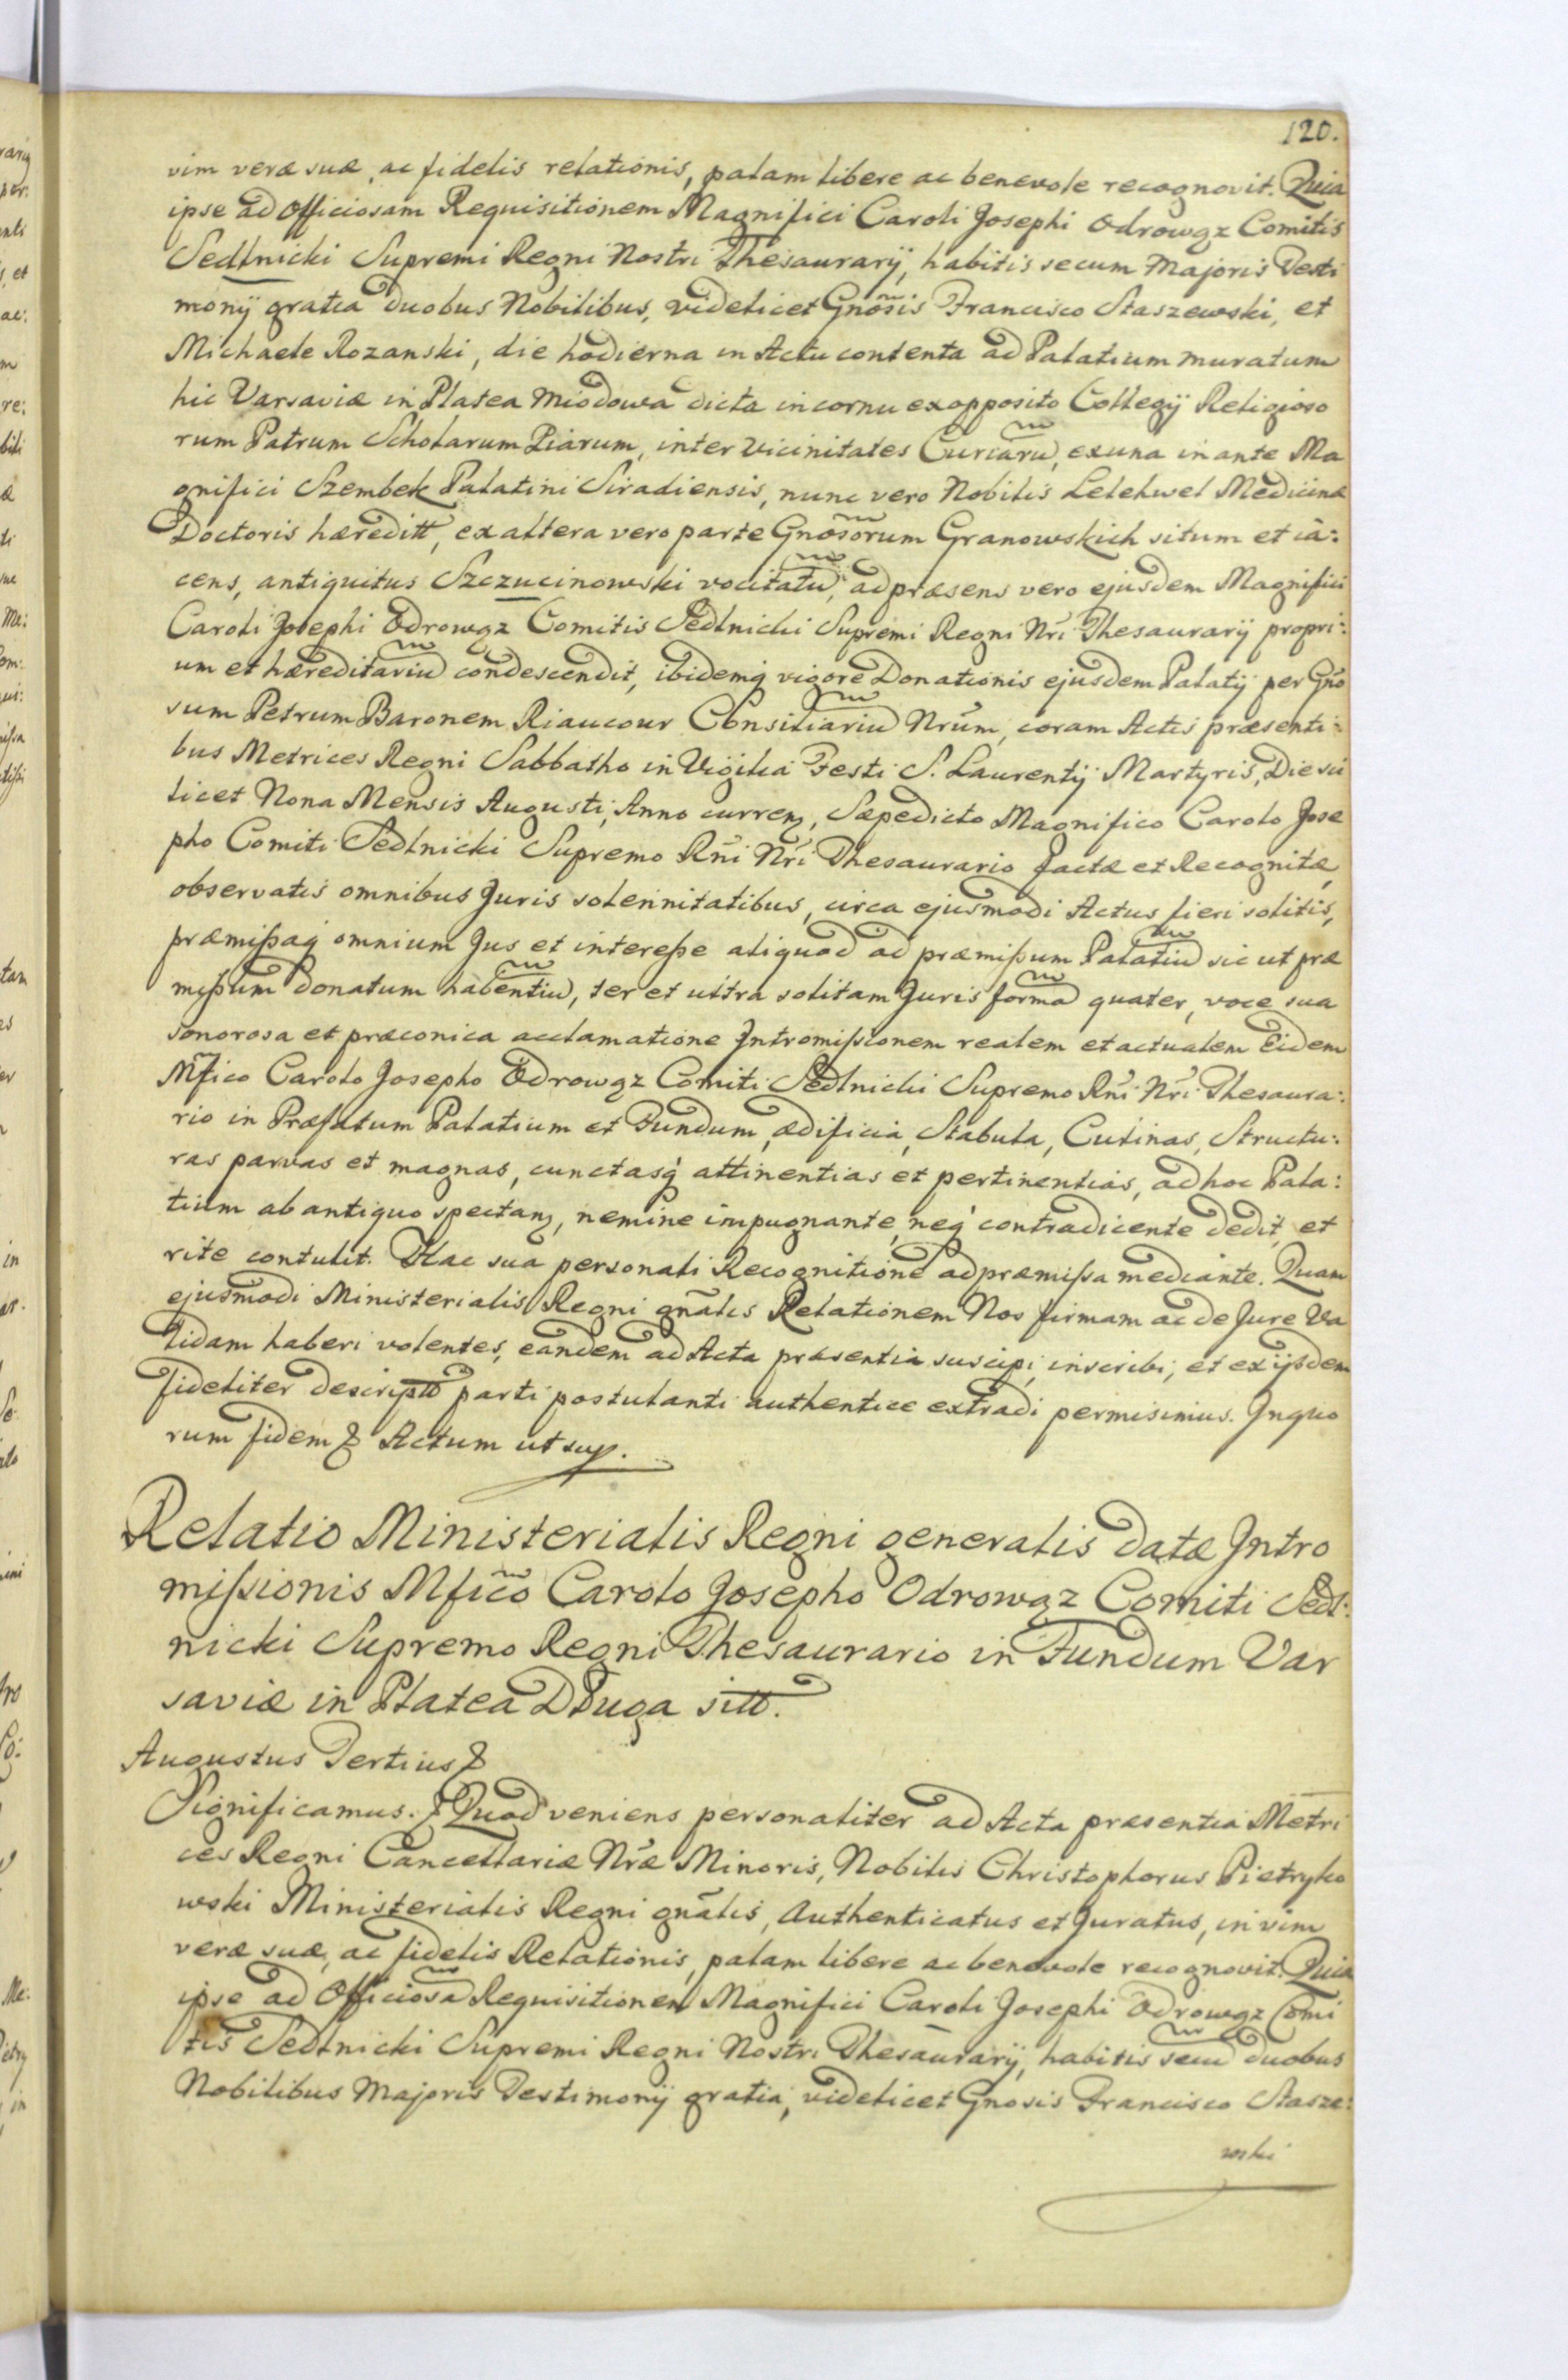 120.
vim veræ suæ, ac fidelis relationis, palam libere ac benevole recognovit. Quia
ipse ad Officiosam Requisitionem Magnifici Caroli Josephi Odrowąz Comitis
Sedlnicki Supremi Regni Nostri Thesaurarij, habitis secum Majoris Testi
monij gratia duobus Nobilibus, videlicet Gnõsis Francisco Staszewski, et
Michaele Rozanski, die hodierna in Actu contenta ad Palatium muratum
hic Varsaviæ in Platea Miodowa dicta in cornu ex opposito Collegij Religioso
rum Patrum Scholarum Piarum, inter Vicinitates Curiarũ, ex una in ante Ma
gnifici Szembek Palatini Siradiensis, nunc vero Nobilis Lelehwel Medicinæ
Doctoris hæreditt, ex altera vero parte Gnõsorum Granowskich situm et ia:
cens, antiquitus Szczucinowski vocitatũ, ad præsens vero ejusdem Magnifici
Caroli Josephi Odrowąz Comitis Sedlnicki Supremi Regni Nri Thesaurarij propri:
um et hæreditariũ condescendit, ibidemq vigore Donationis ejusdem Palatij per Gño
sum Petrum Baronem Riaucour Consiliariũ Nrum, coram Actis præsenti:
bus Metrices Regni Sabbatho in Vigilia Festi S. Laurentij Martyris, Die sci
licet Nona Mensis Augusti, Anno curren, Sæpedicto Magnifico Carolo Jose
pho Comiti Sedlnicki Supremo Rñi Nri Thesaurario factæ et Recognitæ,
observatis omnibus Juris solennitatibus, circa ejusmodi Actus fieri solitis,
præmißaq omnium Jus et intereße aliquod ad præmißum Palatiũ sic ut præ
mißum donatum habentiũ, ter et ultra solitam Juris formã quater, voce sua
sonorosa et præconica acclamatione Intromißionem realem et actualem Eidem
Mfico Carolo Josepho Odrowąz Comiti Sedlnicki Supremo Rñi Nri Thesaura:
rio in Præfatum Palatium et Fundum, ædificia, Stabula, Culinas, Structu:
ras parvas et magnas, cunctasq attinentias et pertinentias, ad hoc Pala:
tium ab antiquo spectan, nemine impugnante, neq contradicente dedit, et
rite contulit. Hac sua personali Recognitione ad præmißa mediante. Quam
ejusmodi Ministerialis Regni gñalis Relationem Nos firmam ac de Jure Va
lidam haberi volentes, eandem ad Acta præsentia suscipi, inscribi, et ex ijsdem
fideliter descriptt parti postulanti authentice extradi permisimus. In quo
rum fidem & Actum ut sup.
Relatio Ministerialis Regni generalis datæ Intro
mißionis Mficõ Carolo Josepho Odrowąz Comiti Sedl:
nicki Supremo Regni Thesaurario in Fundum Var
saviæ in Platea Długa sitt.
Augustus Tertius &
Significamus. & Quod veniens personaliter ad Acta præsentia Metri
ces Regni Cancellariæ Nræ Minoris, Nobilis Christophorus Pietryko
wski Ministerialis Regni gñalis, Authenticatus et Juratus, in vim
veræ suæ, ac fidelis Relationis, palam libere ac benevole recognovit. Quia
ipse ad Officiosã Requisitionem Magnifici Caroli Josephi Odrowąz Comi
tis Sedlnicki Supremi Regni Nostri Thesaurarij, habitis secũ duobus
Nobilibus Majoris Testimonij gratia, videlicet Gnosis Francisco Stasze:
wski